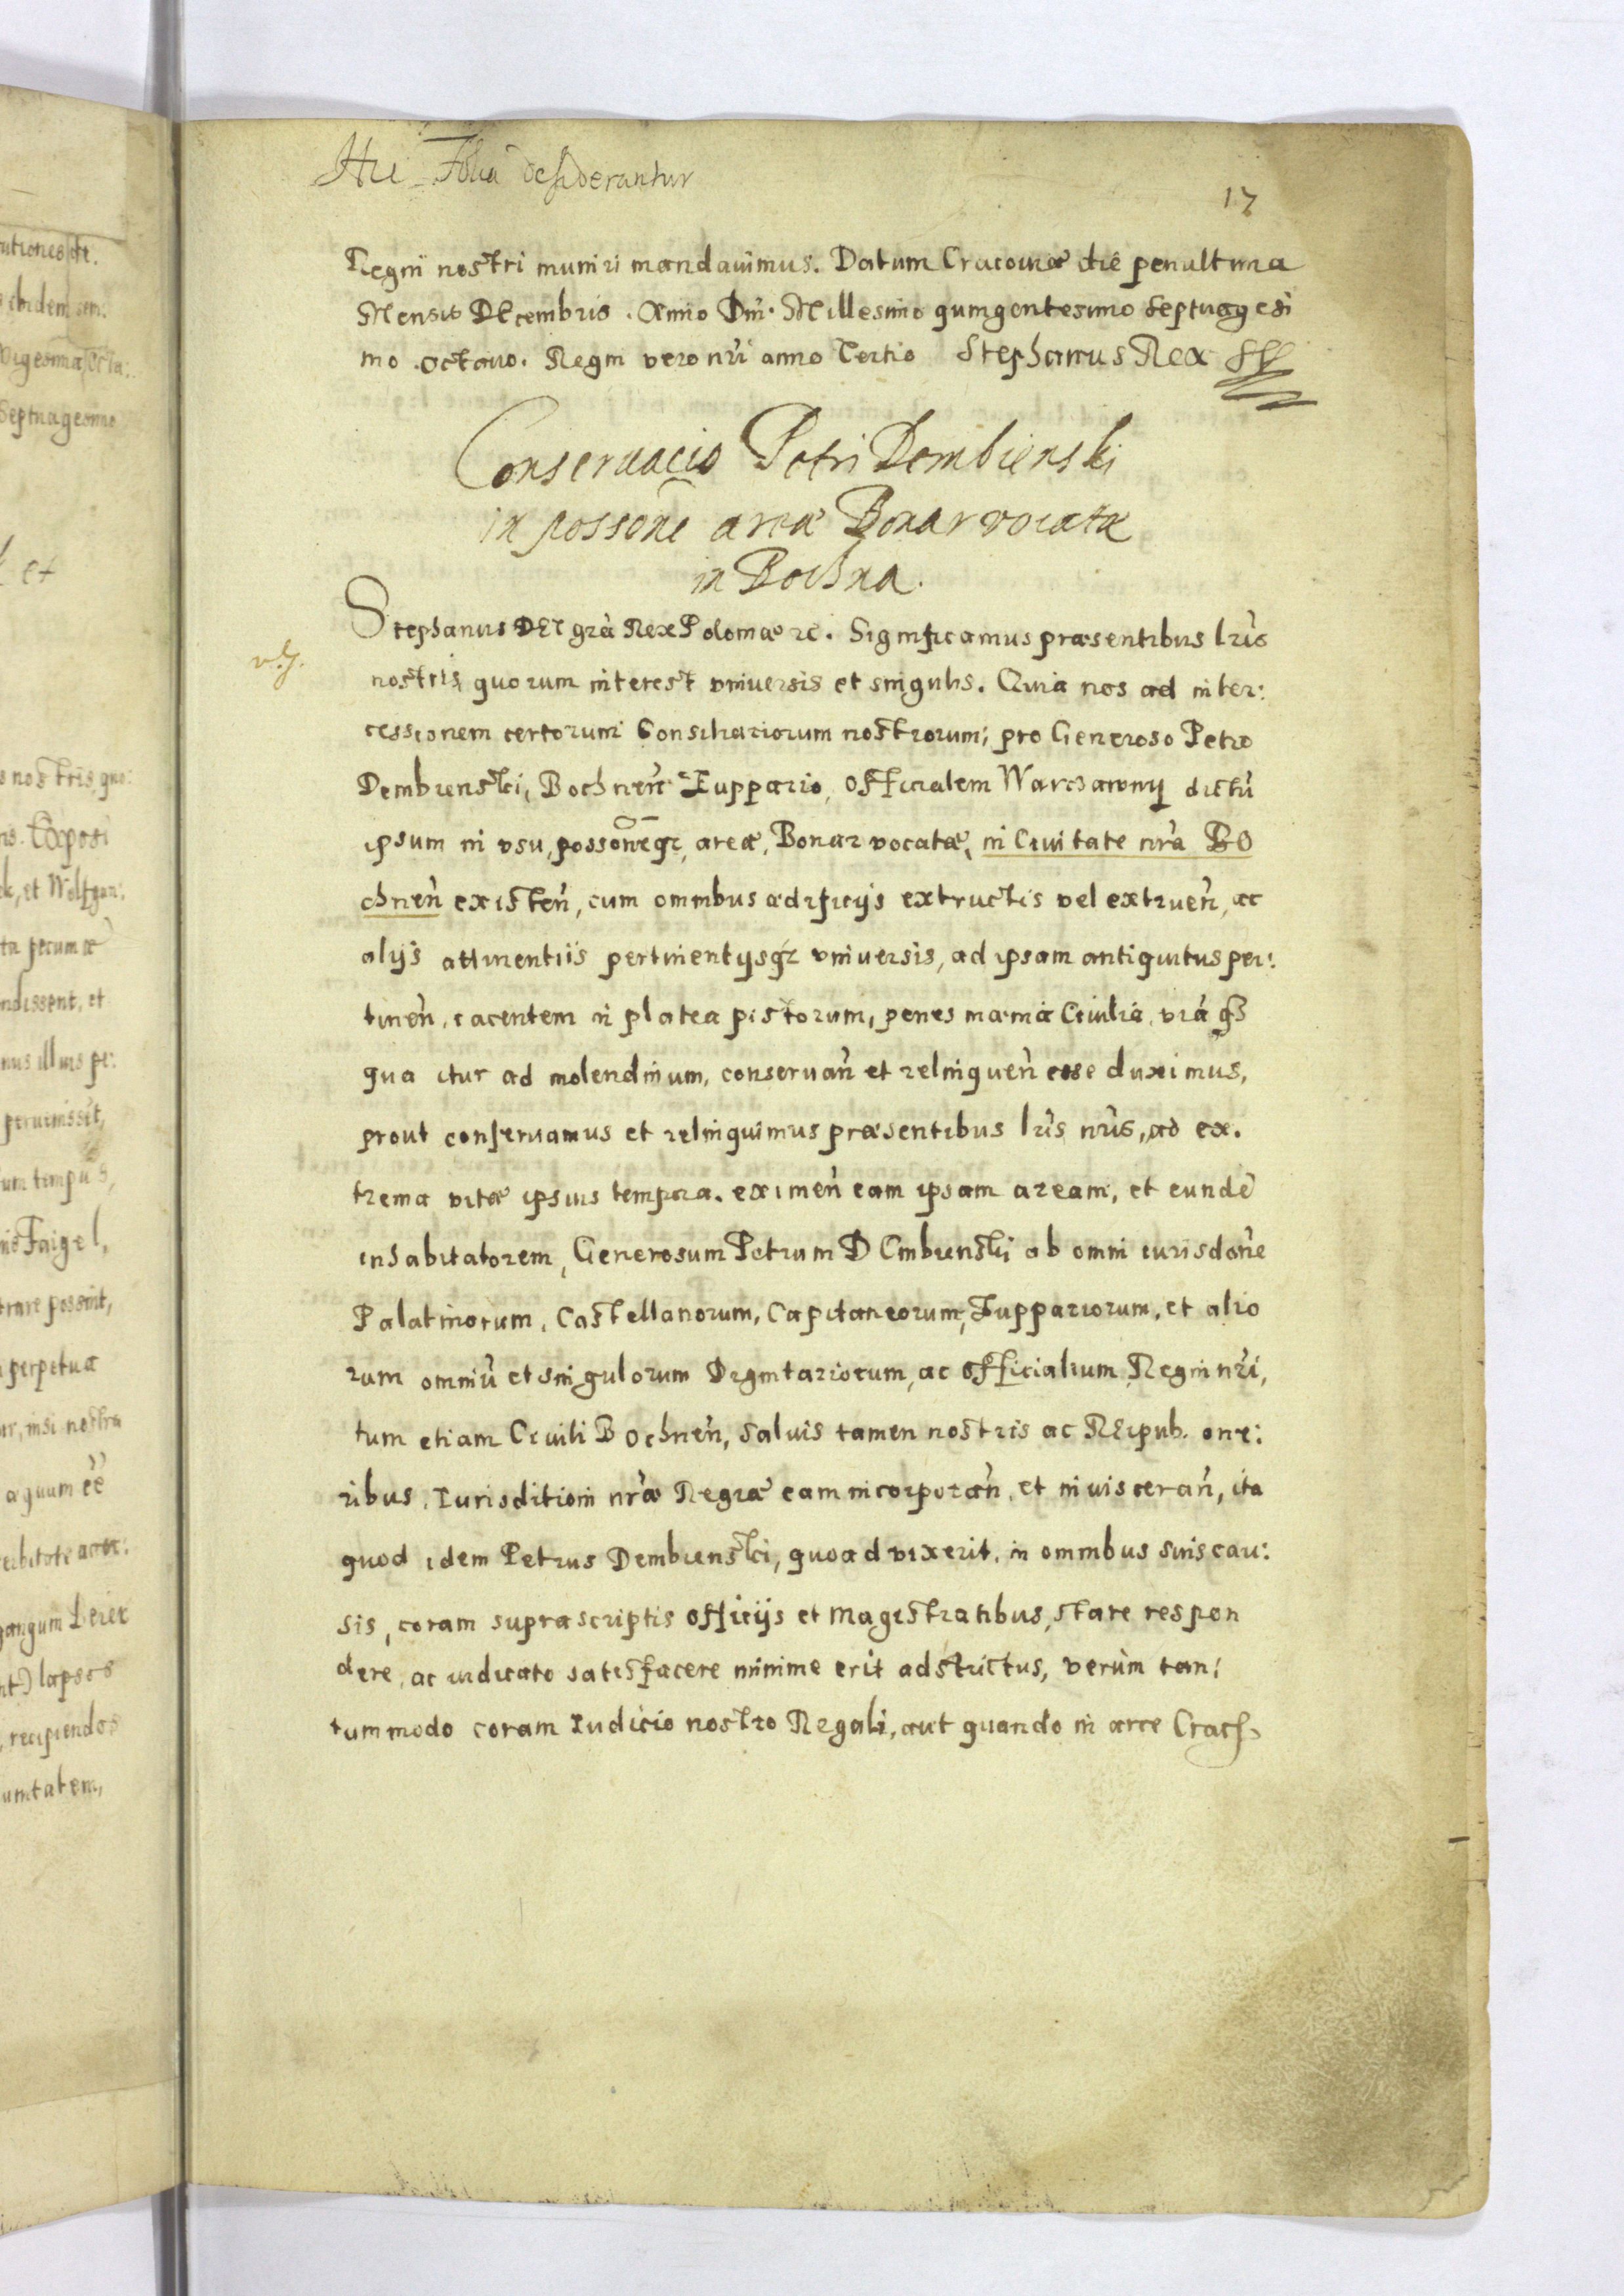 Hic Folia desiderantur
17
Regni nostri muniri mandavimus. Datum Cracoviæ die penultima
Mensis DEcembris. Anno Dni. Millesimo quingentesimo septuagesi
mo octavo. Regni vero nri anno Tertio Stephanus Rex
Conservacio Petri Dembienski
in possone areæ Bonar vocatæ
in Bochna.
Stephanus DEI gra Rex Poloniæ etc. Significamus præsentibus lris
nostris quorum interest vniversis et singulis. Quia nos ad inter:
cessionem certorum Consiliariorum nostrorum, pro Generoso Petro
Dembienski, Bochnen Zuppario, officialem Warchawny dictu
ipsum in vsu, possoneqz areæ, Bonar vocatæ, in Civitate nra BO
chnen existen, cum omnibus ædificijs extructis vel extruen, ac
alijs attinentiis pertinentijsqz vniversis, ad ipsam antiquitus per:
tinen, iacentem in platea pistorum, penes mænia Civilia, via
qua itur ad molendinum, conservan et relinquen esse duximus,
prout conservamus et relinquimus præsentibus lris nris, ad ex.
trema vitæ ipsius tempora. eximen eam ipsam aream, et eunde
inhabitatorem, Generosum Petrum DEmbienski ab omni iurisdone
Palatinorum, Castellanorum, Capitaneorum, Zuppariorum, et alio
rum omniu et singulorum Dignitariorum, ac officialium Regni nri,
tum etiam Civili BOchnen, salvis tamen nostris ac REipub. one:
ribus, Iurisditioni nræ Regiæ eam incorporan, et invisceran, ita
quod idem Petrus Dembienski, quoad vixerit, in omnibus suis cau:
sis, coram suprascriptis officijs et magistratibus, stare respon
dere, ac iudicato satisfacere minime erit adstrictus, verùm tan:
tummodo coram Iudicio nostro Regali, aut quando in arce Crac